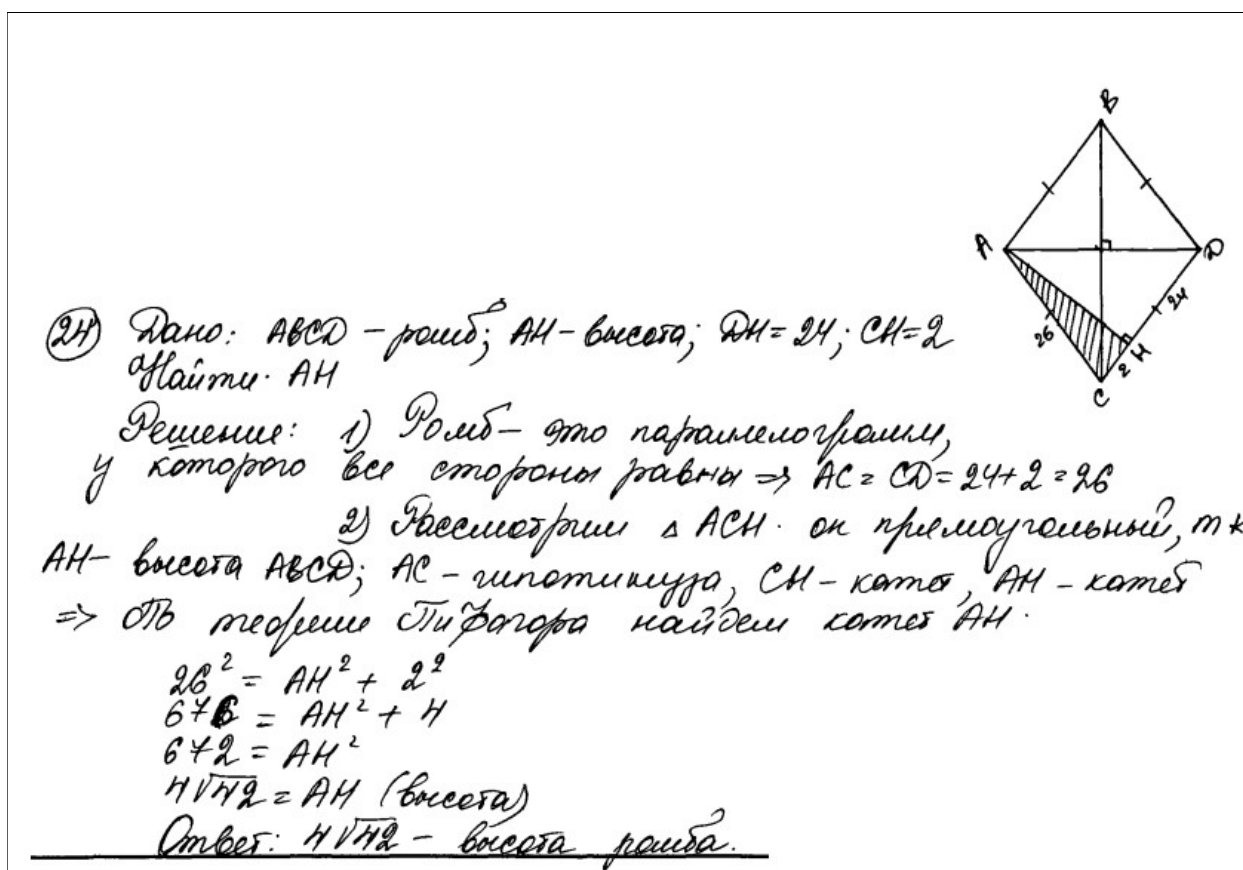 B
A
D
24
26
H
2
C
24 Дано: ABCD - ромб; AH - высота; DH = 24; CH = 2
Найти: AH
Решение: 1) Ромб - это параллелограмм,
у которого все стороны равны => AC = CD = 24 + 2 = 26
2) Рассмотрим △ ACH. он прямоугольный, т к
AH - высота ABCD; AC - гипотинуза, CH - катет, AH - катет
=> По теореме Пифагора найдем катет AH.
26² = AH² + 2²
676 = AH² + 4
672 = AH²
4√42 = AH (высота)
Ответ: 4√42 - высота ромба.